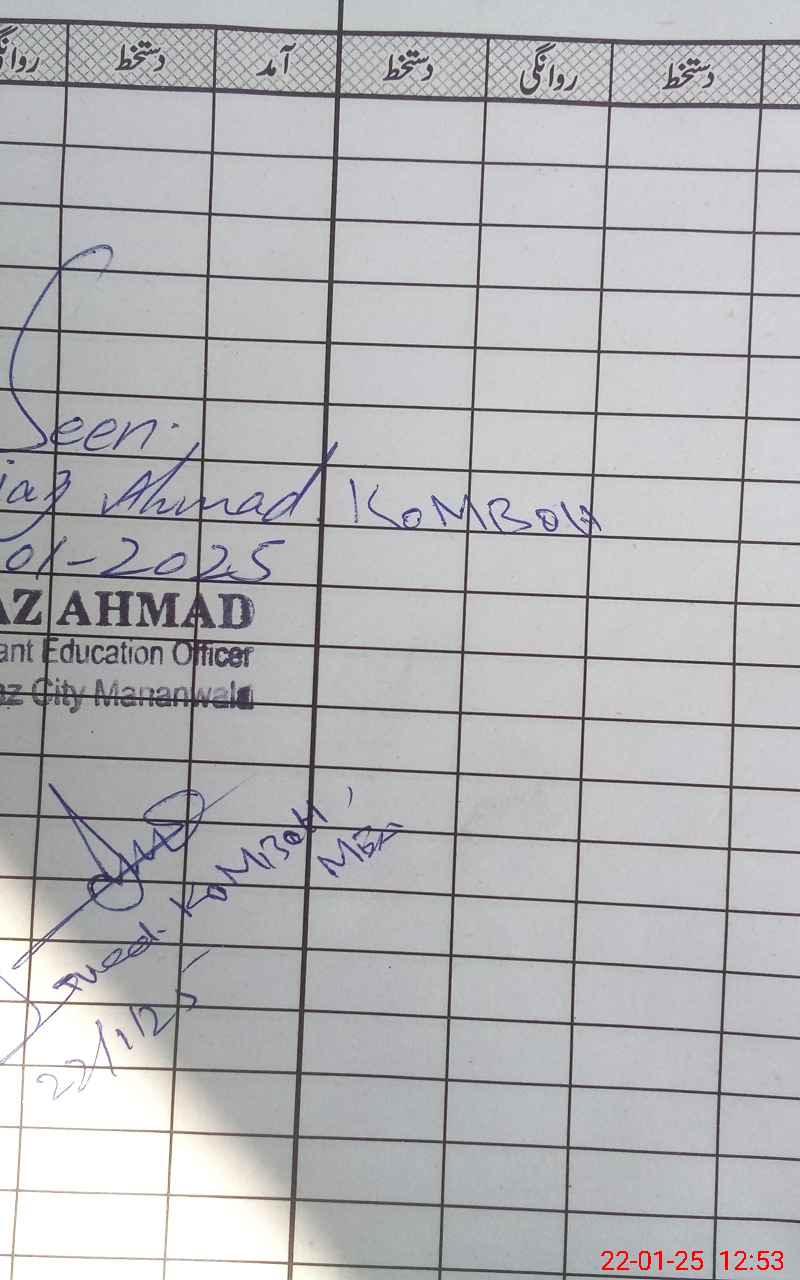 دستخط آمد دستخط روانگی دستخط
Seen.
Ahmad KOMBOH
01-2025
AZ AHMAD
ant Education Officer
az City Mananwala
KOMBOH,
MEA
22/1/25
22-01-25 12:53